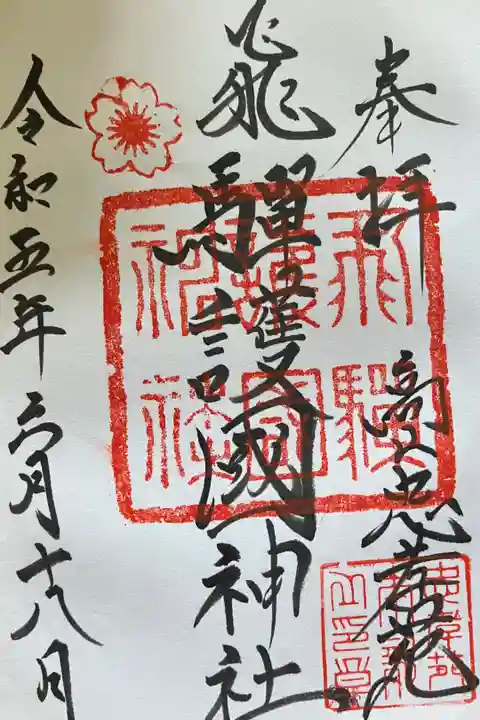 奉拝
高山忠孝苑
飛驒護國神社
令和五年六月十八日
飛驒
護國
神社